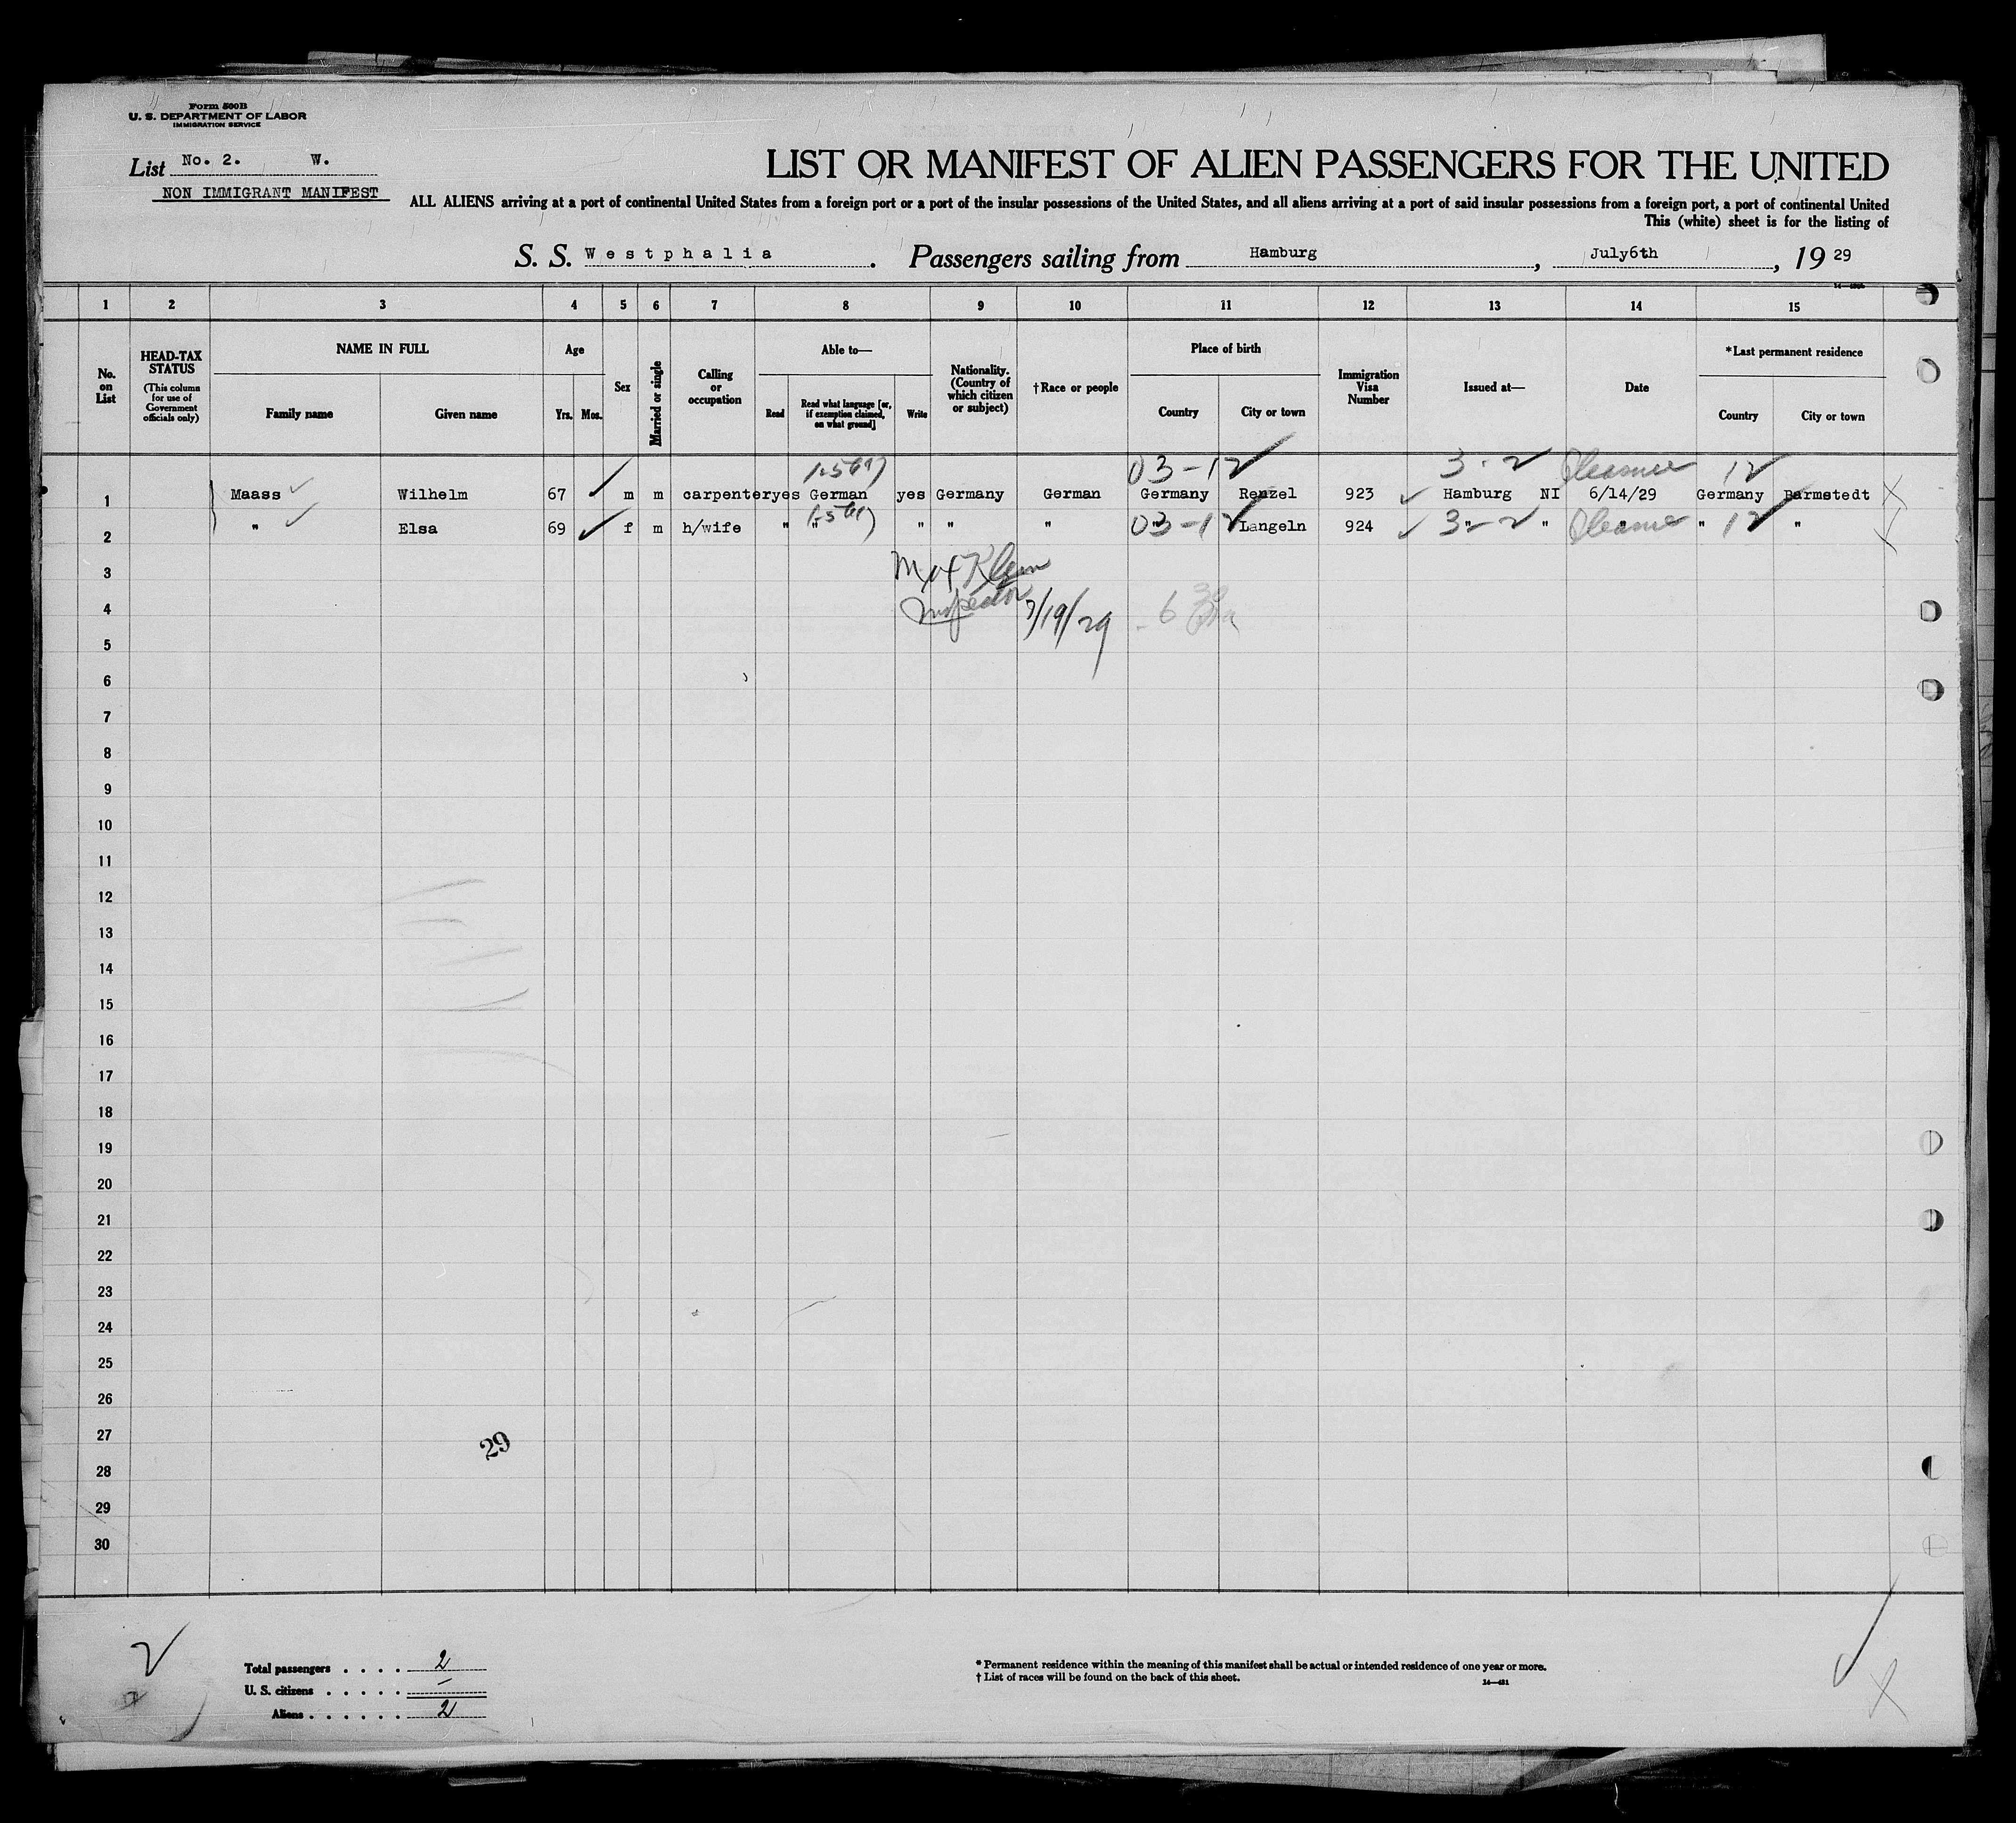 Form 500B
U. S. DEPARTMENT OF LABOR
IMMIGRATION SERVICE
List No. 2. W.
NON IMMIGRANT MANIFEST
LIST OR MANIFEST OF ALIEN PASSENGERS FOR THE UNITED
ALL ALIENS arriving at a port of continental United States from a foreign port or a port of the insular possessions of the United States, and all aliens arriving at a port of said insular possessions from a foreign port, a port of continental United
This (white) sheet is for the listing of
S. S. Westphalia. Passengers sailing from Hamburg, July6th, 19 29
1 2 3 4 5 6 7 8 9 10 11 12 13 14 15
No. on List
HEAD-TAX STATUS (This column for use of Government officials only)
NAME IN FULL
Family name Given name
Age
Yrs. Mos.
Sex
Married or single
Calling or occupation
Able to—
Read Read what language [or, if exemption claimed, on what ground] Write
Nationality. (Country of which citizen or subject)
†Race or people
Place of birth
Country City or town
Immigration Visa Number
Issued at—
Date
*Last permanent residence
Country City or town
03-12 3-2 Pleasure 12
1 Maass Wilhelm 67 m m carpenter yes German yes Germany German Germany Renzel 923 Hamburg NI 6/14/29 Germany Barmstedt
2 " Elsa 69 f m h/wife " " " " " " 03-12 Langeln 924 3-2 " " Pleasure " 12 "
3 Max Klein
4 Inspector 7/19/29 6 30
5
6
7
8
9
10
11
12
13
14
15
16
17
18
19
20
21
22
23
24
25
26
27
29
28
29
30
2
Total passengers . . . . 2
U. S. citizens . . . . . –
Aliens . . . . . . 2
* Permanent residence within the meaning of this manifest shall be actual or intended residence of one year or more.
† List of races will be found on the back of this sheet.